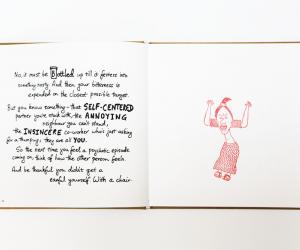 No, it must be Bottled up till it festers into
something nasty. And then your bitterness is
expended on the closest possible target.
But you know something – that SELF-CENTERED
partner you're stuck with, the ANNOYING
neighbour you can't stand,
the INSINCERE co-worker who's just asking
for a thumping, they are all YOU.
So the next time you feel a psychotic episode
coming on, think of how the other person feels.
And be thankful you didn't get a
earful yourself. With a chair.